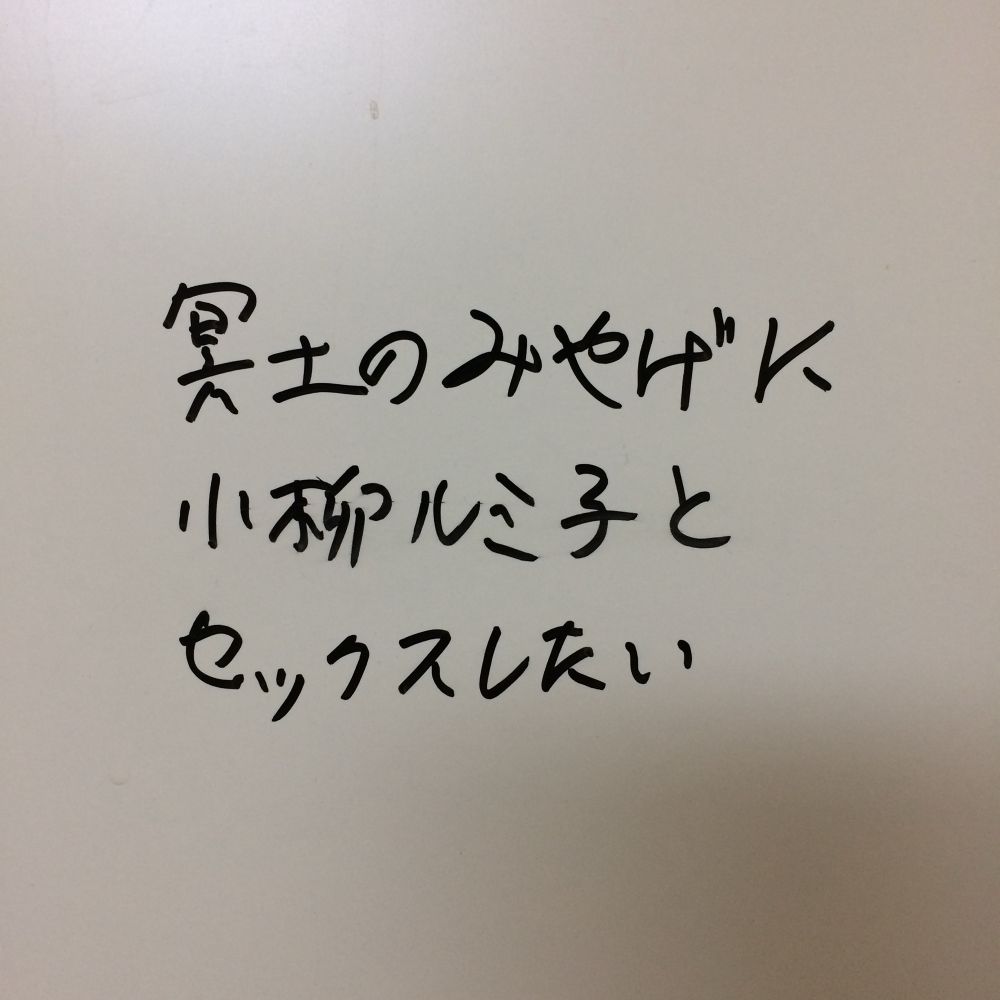 冥土のみやげに
小柳ルミ子と
セックスしたい